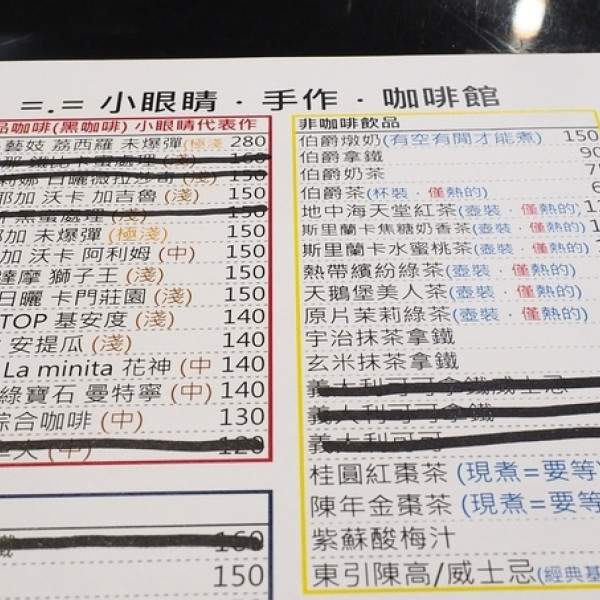 =.= 小眼睛．手作．咖啡館
品咖啡(黑咖啡) 小眼睛代表作
藝妓 荔西羅 未爆彈(極淺 280
蜜處理(淺) 160
日曬薇拉莎奇(淺) 150
耶加 沃卡 加吉魯(淺) 150
蜜處理(淺) 150
耶加 未爆彈 (極淺) 150
加 沃卡 阿利姆 (中) 150
達摩 獅子王 (淺) 150
日曬 卡門莊園 (淺) 150
TOP 基安度 (淺) 140
安提瓜 (淺) 140
La minita 花神 (中 140
綠寶石 曼特寧 (中) 140
綜合咖啡 (中) 130
(中) 120
160
150
非咖啡飲品
伯爵燉奶(有空有閒才能煮) 150
伯爵拿鐵 90
伯爵奶茶
伯爵茶(杯裝．僅熱的)
地中海天堂紅茶(壺裝．僅熱的)
斯里蘭卡焦糖奶香茶(壺裝．僅熱的)
斯里蘭卡水蜜桃茶(壺裝．僅熱的)
熱帶繽紛綠茶(壺裝．僅熱的)
天鵝堡美人茶(壺裝．僅熱的)
原片茉莉綠茶(壺裝．僅熱的)
宇治抹茶拿鐵
玄米抹茶拿鐵
義大利可可拿鐵威士忌
義大利可可拿鐵
義大利可可
桂圓紅棗茶 (現煮=要等)
陳年金棗茶 (現煮=要等
紫蘇酸梅汁
東引陳高/威士忌(經典基